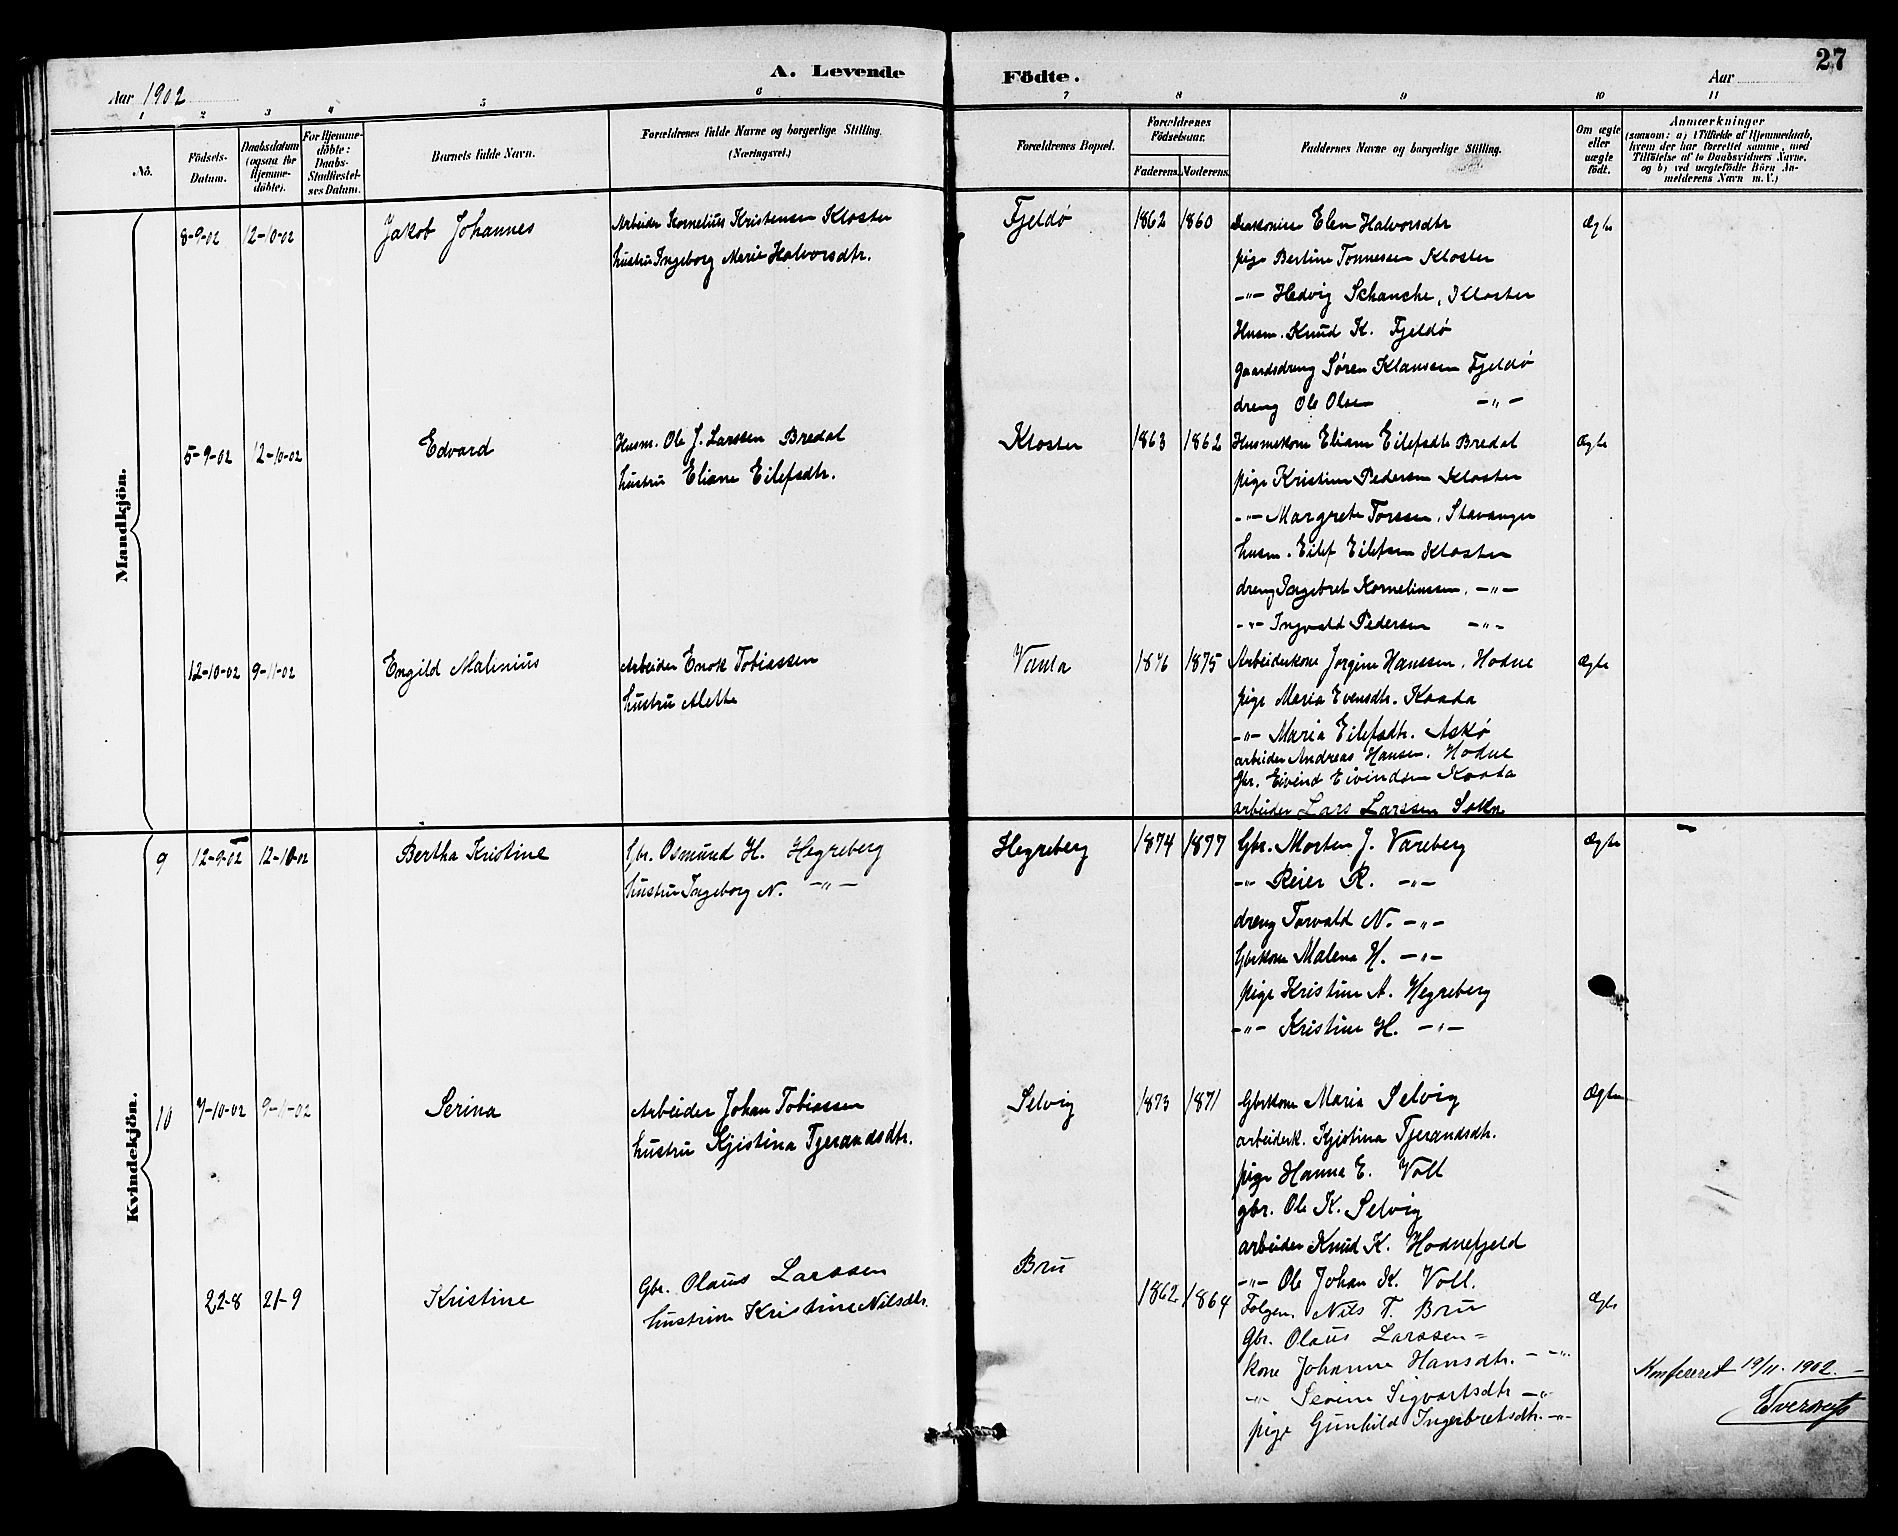 A. Levende Födte.
27
Aar 1902
Aar
1 2 3 4 5 6 7 8 9 10 11
No.
Födsels-Datum.
Daabsdatum (ogsaa for Hjemme-döbte).
For Hjemme-döbte: Daabs-Stadfæstel-ses Datum.
Barnets fulde Navn.
Forældrenes fulde Navne og borgerlige Stilling.
(Næringsvei.)
Forældrenes Bopæl.
Forældrenes Födselsaar.
Faderens. Moderens.
Faddernes Navne og borgerlige Stilling.
Om ægte eller uægte födt.
Anmærkninger
(saasom: a) i Tilfælde af Hjemmedaab, hvem der har forrettet samme, med Tilföielse af to Daabsvidners Navne. og b) ved uægtefödte Börn An-melderens Navn m. V.)
Mandkjön.
8-9-02 12-10-02 Jakob Johannes
Arbeider Kornelius Kristensen Kloster
hustru Ingeborg Marie Halvorsdtr.
Fjeldø 1862 1860
Diakonisse Elen Halvorsdtr
pige Bertine Tønnessen Kloster
-"- Hedvig Schanche, Kloster
Husm. Knud K. Fjeldø
gaardsdreng Søren Klausen Fjeldø
dreng Ole Olsen -"-
Ægte
5-9-02 12-10-02 Edvard
Husm. Ole J. Larssen Bredal
hustru Eliane Eilefsdtr.
Kloster 1863 1862
Husmekone Eliane Eilefsdtr Bredal
pige Kristine Pedersen Kloster
-"- Margrete Torssen, Stavanger
husm. Eilef Eilefsen Kloster
dreng Ingebret Korneliussen, -"-
-"- Ingvald Pedersen -"-
Ægte
12-10-02 9-11-02 Engild Malenius
Arbeider Enok Tobiassen
hustru Alette
1876 1875
Arbeiderkone Jorgine Hanssen, Hodne
pige Maria Evensdtr. Kaada
-"- Maria Eilefsdtr. Askø
arbeider Andreas Hansen, Hodne
Gbr. Eivind Eivindsen Kaada
arbeider Lars Larssen Sokn
Ægte
Kvindekjön.
9 12-9-02 12-10-02 Bertha Kristine
Gbr. Osmund H. Hegreberg
hustru Ingeborg N. -"-
Hegreberg 1874 1877
Gbr. Morten J. Vareberg
-"- Reier R. -"-
dreng Torvald N. -"-
Gbrkone Malena H. -"-
pige Kristine A. Hegreberg
-"- Kristine H. -"-
Ægte
10 7-10-02 9-11-02 Serina
Arbeider Johan Tobiassen
hustru Kjistina Tjerandsdtr.
Selvig 1873 1871
Gbrkone Maria Selvig
arbeiderk. Kjistina Tjerandsdtr.
pige Hanna E. Voll
gbr. Ole K. Selvig
arbeider Knud K. Hodnefjeld
-"- Ole Johan K. Voll.
Ægte
22-8 21-9 Kristine
Gbr. Olaus Larssen
hustrue Kristine Nilsdtr.
Bru 1862 1864
Folgem. Nils T. Bru
Gbr. Olaus Larssen =
kone Johanne Hansdtr. -"-
-"- Sevine Sigvartsdtr -"-
pige Gunhild Ingebretsdtr. -"-
Ægte
Konfereret 19/11. 1902.